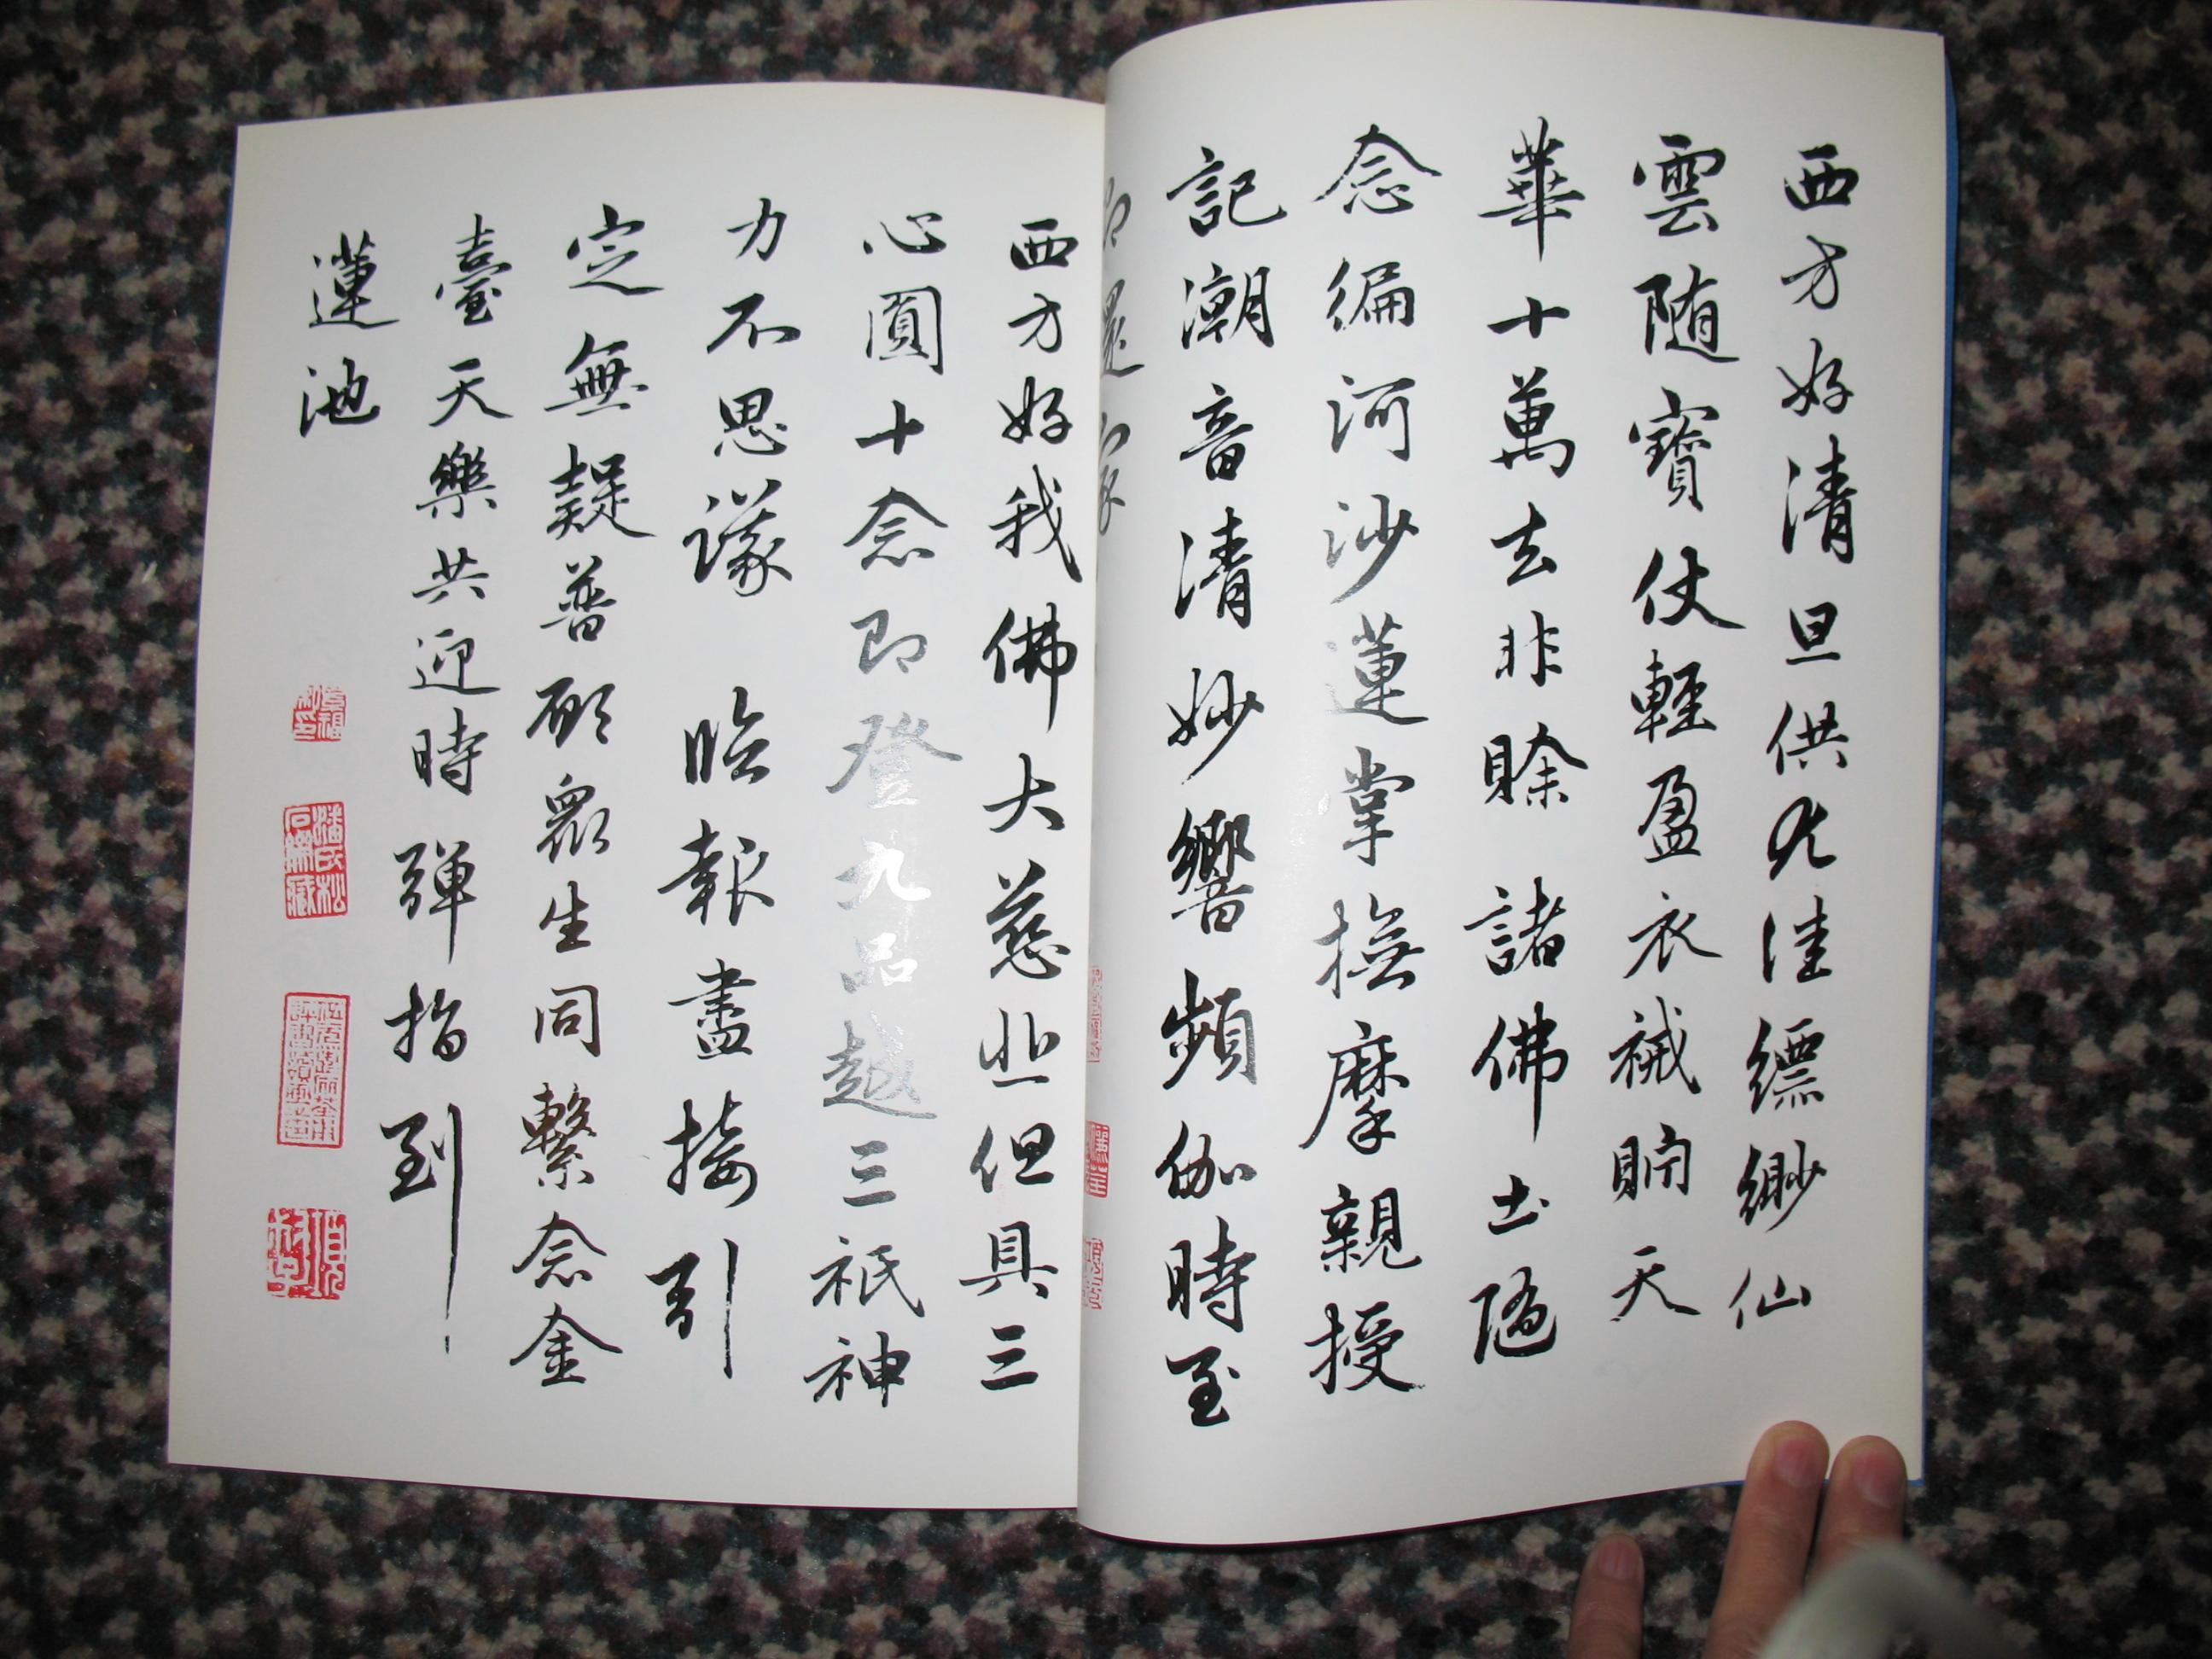 西方好清旦供尤佳縹緲仙
雲随寶仗輕盈衣祴貯天
華十萬去非賒諸佛土隨
念徧河沙蓮掌撫摩親授
記潮音清妙響頻伽時至
西方好我佛大慈悲但具三
心圓十念即登九品越三祇神
力不思議臨報盡接引
定無疑普願眾生同繫念金
臺天樂共迎時彈指到
蓮池